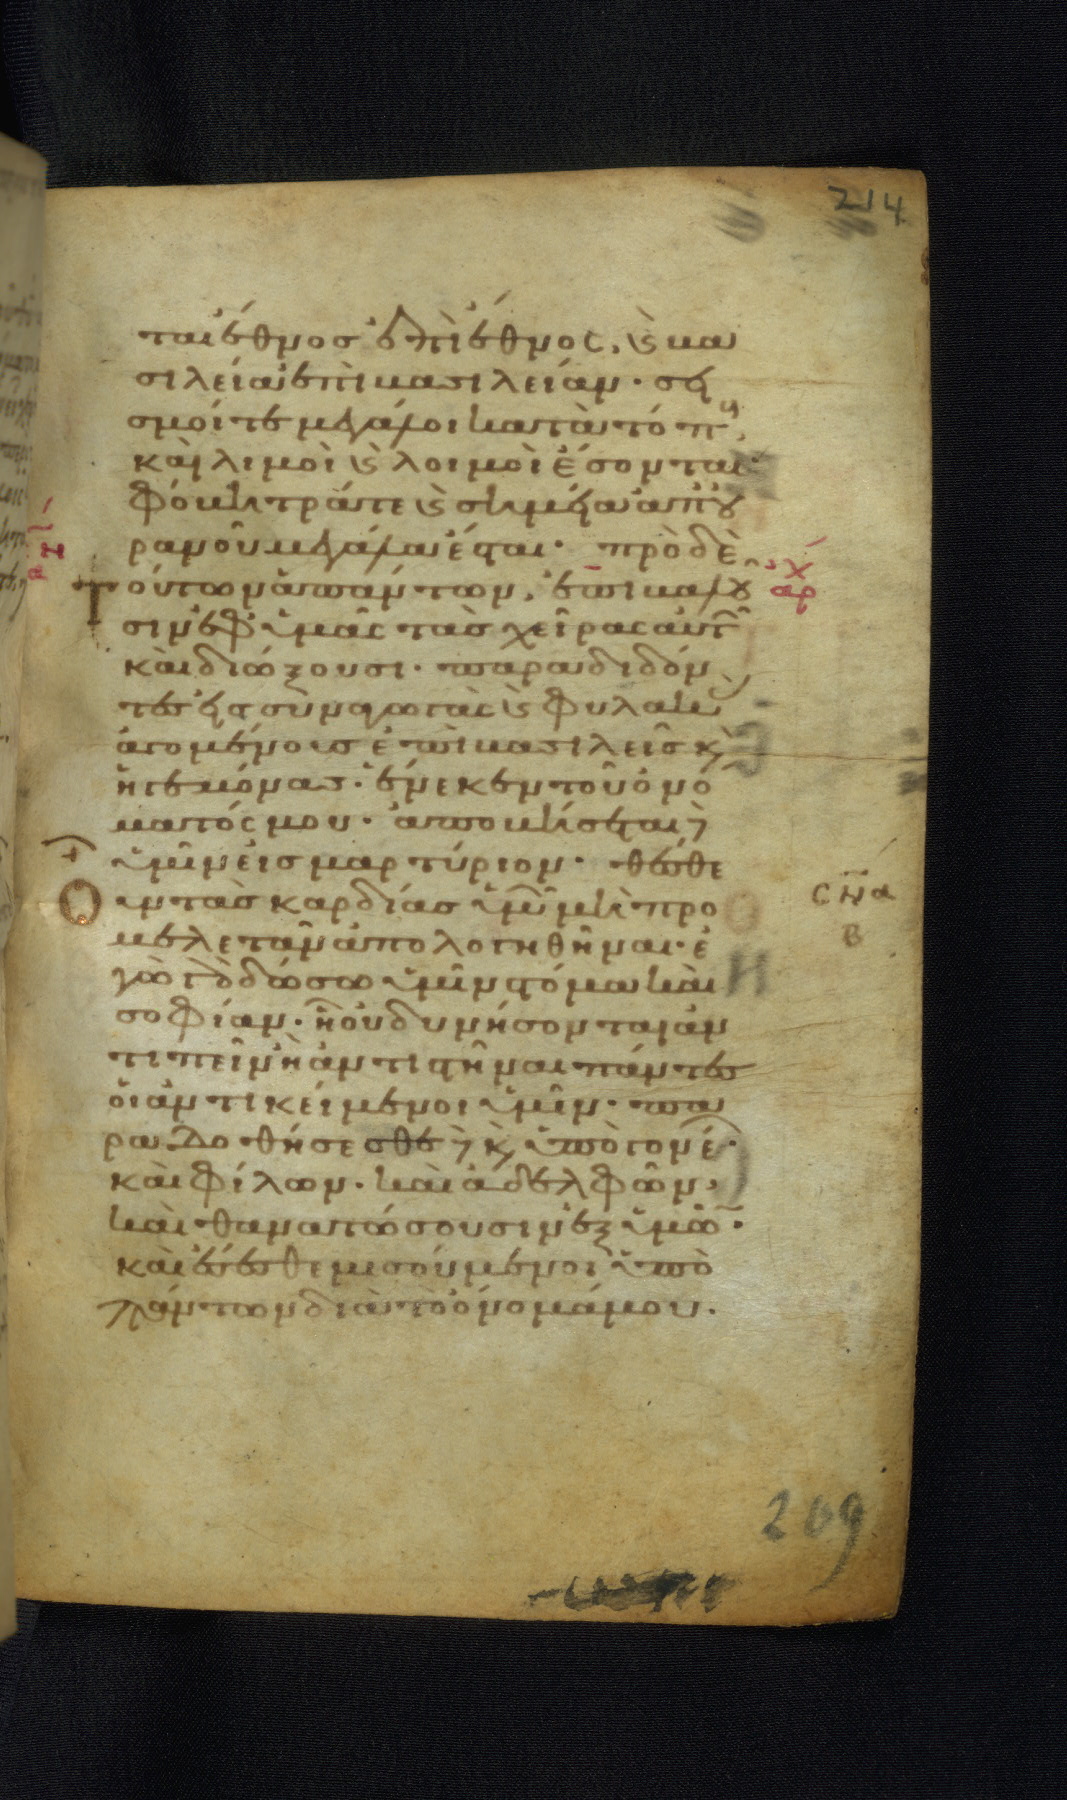 214
ται ἔθνος ἐπὶ ἔθνος, ϗ βα
σιλεία ἐπὶ βασιλείαν· σει
σμοί τε μεγάλοι κατὰ τόπους,
καὶ λιμοὶ ϗ λοιμοὶ ἔσονται·
φόβητρά τε ϗ σημεῖα ἀπ' οὐ
ρανοῦ μεγάλα ἔσται· πρὸ δὲ
τούτων ἁπάντων, ἐπιβαλοῦ
σιν ἐφ' ὑμᾶς τὰς χεῖρας αὐτῶν
καὶ διώξουσι· παραδιδόν
τες εἰς συναγωγὰς ϗ φυλακὰς
ἀγομένους ἐπὶ βασιλεῖς ϗ
ἡγεμόνας· ἕνεκεν τοῦ ὀνό
ματός μου· ἀποβήσεται δὲ
ὑμῖν εἰς μαρτύριον· θέσθε
οὖν τὰς καρδίας ὑμῶν μὴ προ
μελετᾶν ἀπολογηθῆναι· ἐ
γὼ γὰρ δώσω ὑμῖν στόμα καὶ
σοφίαν· ᾗ οὐ δυνήσονται ἀν
τιπεῖν ἢ ἀντιστῆναι πάντες
οἱ ἀντικείμενοι ὑμῖν· πα
ραδοθήσεσθε δὲ ϗ ὑπὸ γονέων·
καὶ φίλων· καὶ ἀδελφῶν,
καὶ θανατώσουσιν ἐξ ὑμῶν·
καὶ ἔσεσθε μισούμενοι ὑπὸ
πάντων διὰ τὸ ὄνομά μου.
209